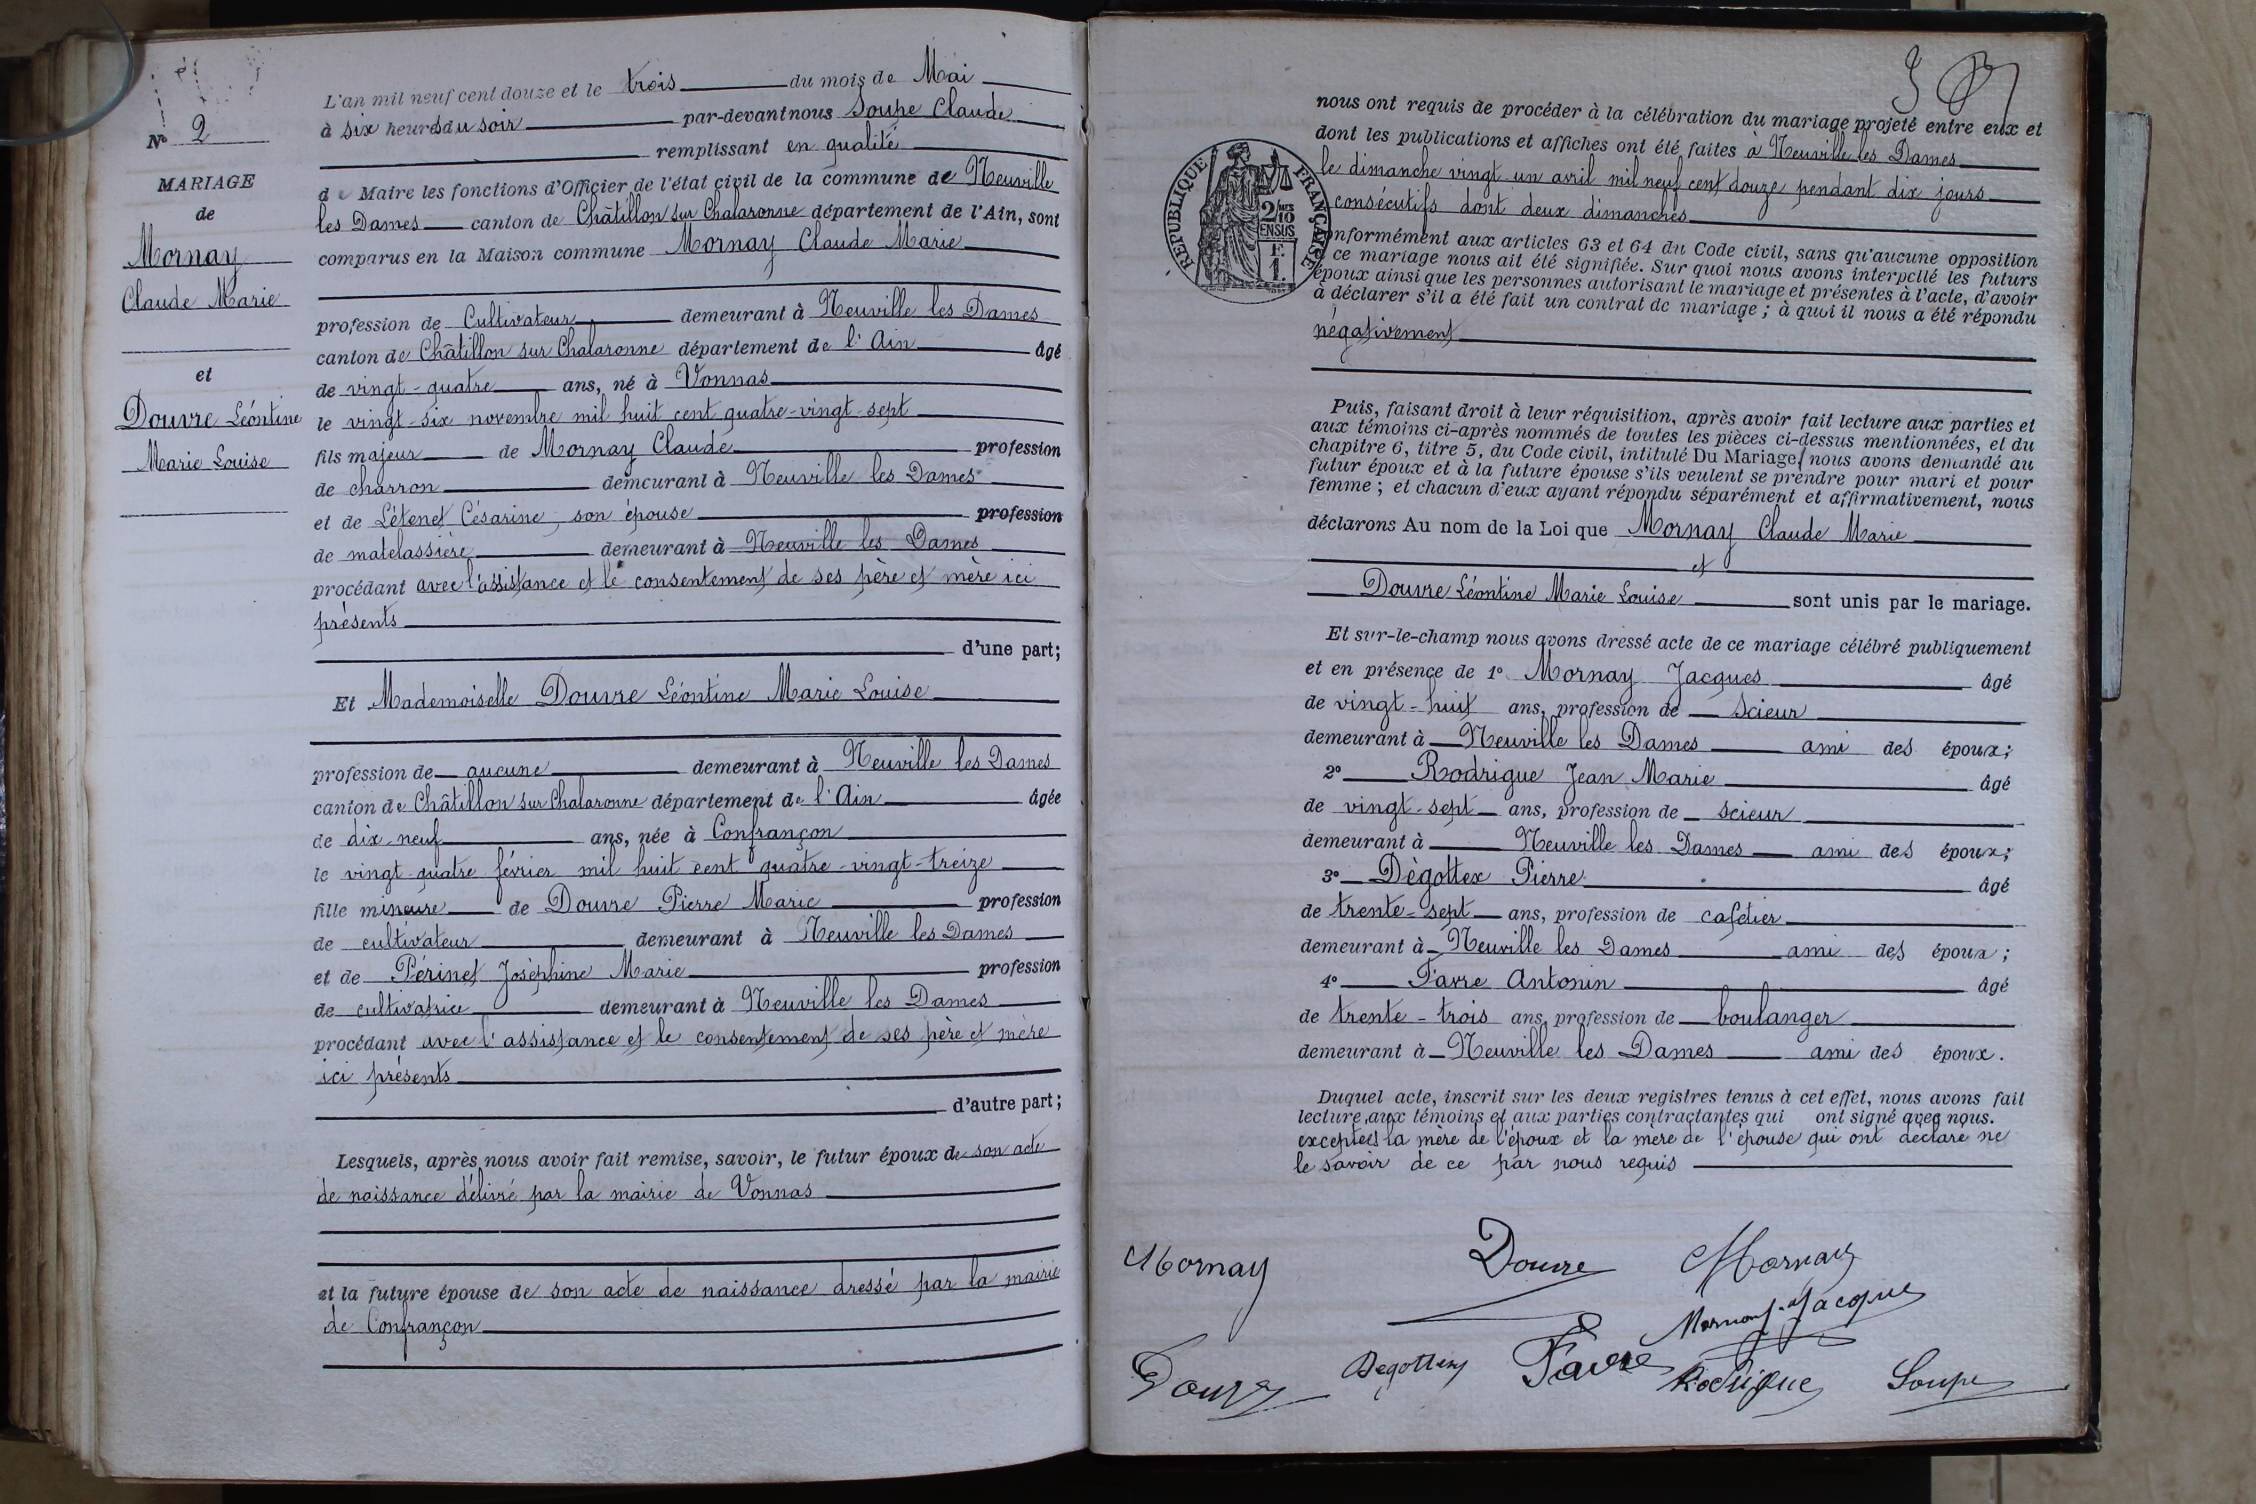 N° 2
MARIAGE
de
Mornay
Claude Marie
et
Douvre Léontine
Marie Louise
L'an mil neuf cent douze et le trois du mois de Mai
à six heures du soir par-devant nous Soupe Claude
remplissant en qualité
de Maire les fonctions d'Officier de l'état civil de la commune de Neuville
les Dames canton de Châtillon sur Chalaronne département de l'Ain, sont
comparus en la Maison commune Mornay Claude Marie
profession de Cultivateur demeurant à Neuville les Dames
canton de Châtillon sur Chalaronne département de l'Ain âgé
de vingt-quatre ans, né à Vonnas
le vingt-six novembre mil huit cent quatre-vingt-sept
fils majeur de Mornay Claude profession
de charron demeurant à Neuville les Dames
et de Létenet Césarine, son épouse profession
de matelassière demeurant à Neuville les Dames
procédant avec l'assistance et le consentement de ses père et mère ici
présents
d'une part;
Et Mademoiselle Douvre Léontine Marie Louise
profession de aucune demeurant à Neuville les Dames
canton de Châtillon sur Chalaronne département de l'Ain âgée
de dix-neuf ans, née à Confrançon
le vingt-quatre février mil huit cent quatre-vingt-treize
fille mineure de Douvre Pierre Marie profession
de cultivateur demeurant à Neuville les Dames
et de Périnet Josèphine Marie profession
de cultivatrice demeurant à Neuville les Dames
procédant avec l'assistance et le consentement de ses père et mère
ici présents
d'autre part;
Lesquels, après nous avoir fait remise, savoir, le futur époux de son acte
de naissance délivré par la mairie de Vonnas
et la future épouse de son acte de naissance dressé par la mairie
de Confrançon
3
nous ont requis de procéder à la célébration du mariage projeté entre eux et
dont les publications et affiches ont été faites à Neuville les Dames
le dimanche vingt-un avril mil neuf cent douze pendant dix jours
consécutifs dont deux dimanches
RÉPUBLIQUE FRANÇAISE
2/10
EN SUS
F.
1.
onformément aux articles 63 et 64 du Code civil, sans qu'aucune opposition
à ce mariage nous ait été signifiée. Sur quoi nous avons interpellé les futurs
époux ainsi que les personnes autorisant le mariage et présentes à l'acte, d'avoir
à déclarer s'il a été fait un contrat de mariage; à quoi il nous a été répondu
négativement
Puis, faisant droit à leur réquisition, après avoir fait lecture aux parties et
aux témoins ci-après nommés de toutes les pièces ci-dessus mentionnées, et du
chapitre 6, titre 5, du Code civil, intitulé Du Mariage, nous avons demandé au
futur époux et à la future épouse s'ils veulent se prendre pour mari et pour
femme; et chacun d'eux ayant répondu séparément et affirmativement, nous
déclarons Au nom de la Loi que Mornay Claude Marie
et
Douvre Léontine Marie Louise sont unis par le mariage.
Et sur-le-champ nous avons dressé acte de ce mariage célébré publiquement
et en présence de 1° Mornay Jacques âgé
de vingt-huit ans, profession de scieur
demeurant à Neuville les Dames ami des époux;
2° Rodrigue Jean Marie âgé
de vingt-sept ans, profession de scieur
demeurant à Neuville les Dames ami des époux;
3° Dègottex Pierre âgé
de trente-sept ans, profession de cafetier
demeurant à Neuville les Dames ami des époux;
4° Favre Antonin âgé
de trente-trois ans, profession de boulanger
demeurant à Neuville les Dames ami des époux.
Duquel acte, inscrit sur les deux registres tenus à cet effet, nous avons fait
lecture aux témoins et aux parties contractantes qui ont signé avec nous.
exceptées la mère de l'époux et la mère de l'épouse qui ont déclaré ne
le savoir de ce par nous requis
Mornay Douvre Mornay
Mornay Jacque
Douvre Degottex Favre Rodrigue Soupe